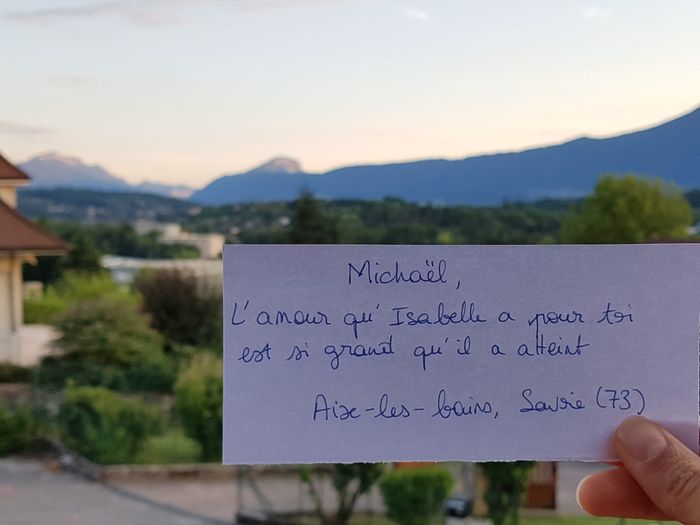 Michaël,
L'amour qu'Isabelle a pour toi
est si grand qu'il a atteint
Aix-les-bains, Savoie (73)